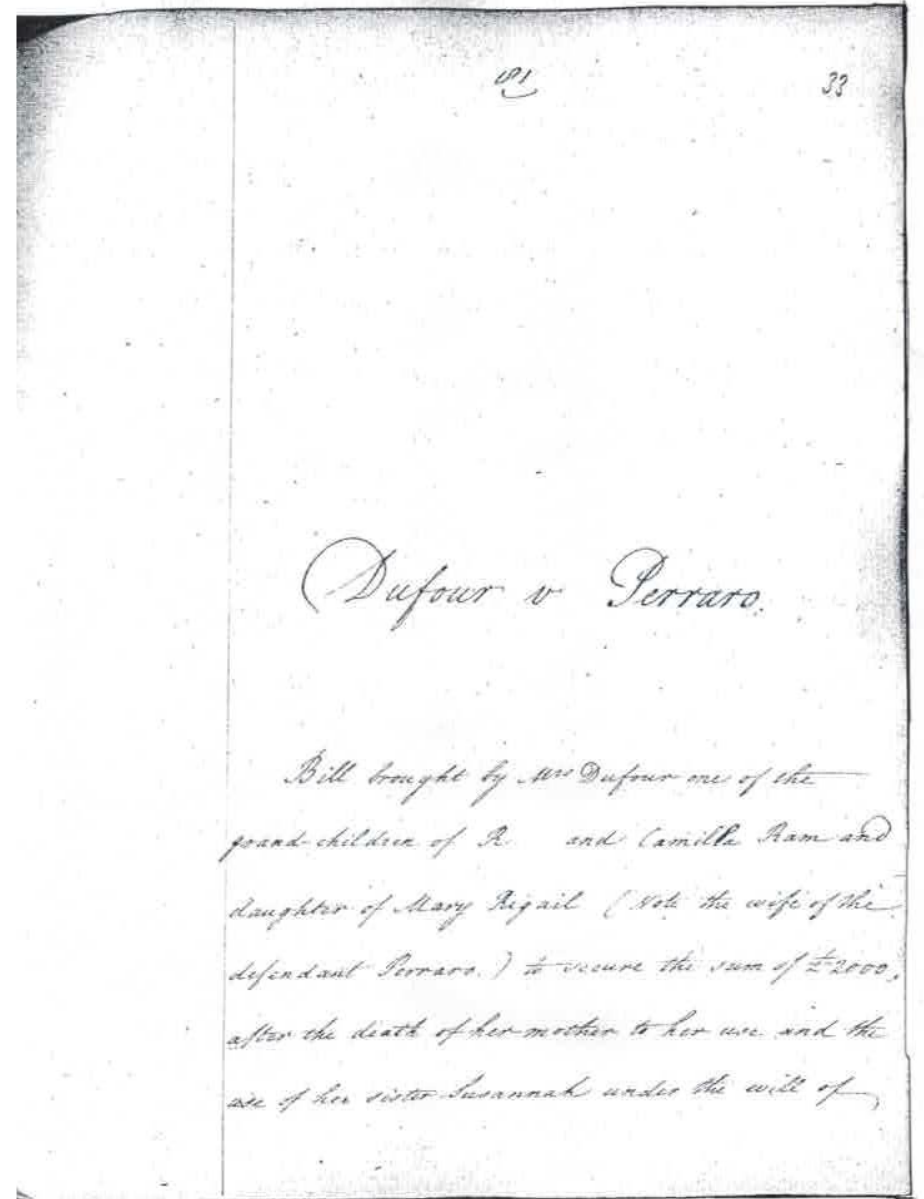 181 33
Dufour v Perraro.
Bill brought by Mrs Dufour one of the
grand-children of R and Camilla Ram and
daughter of Mary Rigail (Note the wife of the
defendant Perraro.) to secure the sum of £2000,
after the death of her mother to her use and the
use of her sister Susannah under the will of